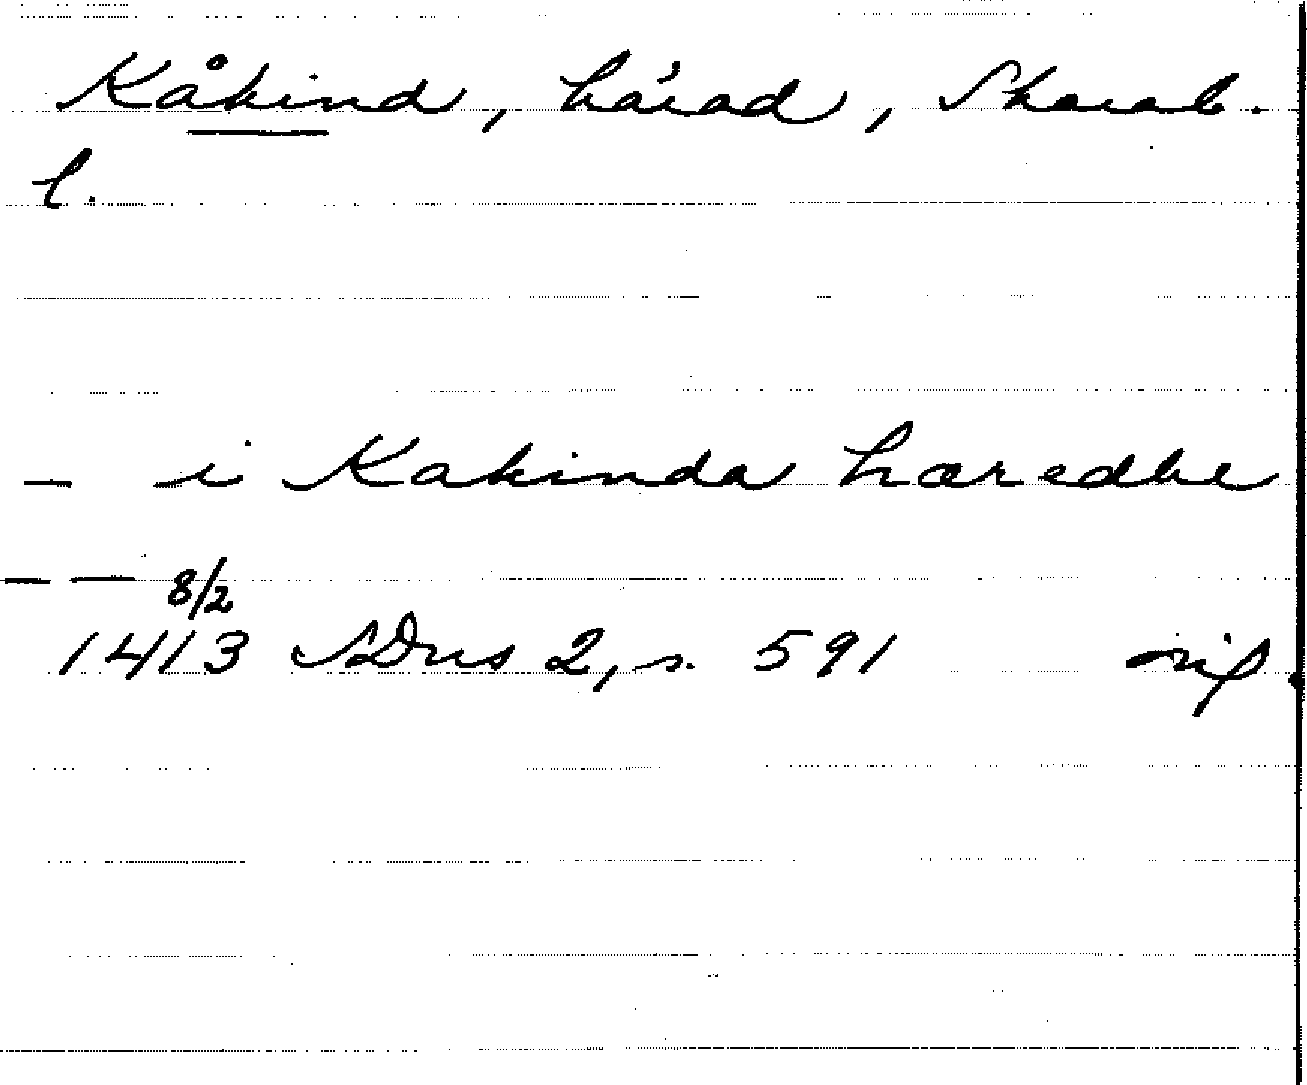 Kåkind, härad, Skarab.
l.
— i Kakinda hæredhe
— — 8/2
1413 SDns 2, s. 591